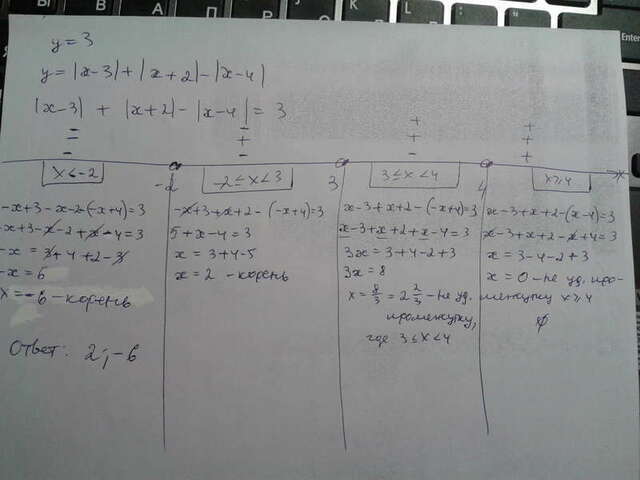 y = 3
y = |x-3| + |x+2| - |x-4|
|x-3| + |x+2| - |x-4| = 3
- - + +
- + + +
- - - +
-2 3 4 x
x < -2
-x+3-x-2-(-x+4)=3
-x+3-x-2+x-4=3
-x = 3+4+2-3
-x = 6
x = -6 - корень
Ответ: 2; -6
-2 ≤ x < 3
-x+3+x+2-(-x+4)=3
5+x-4=3
x = 3+4-5
x = 2 - корень
3 ≤ x < 4
x-3+x+2-(-x+4)=3
x-3+x+2+x-4=3
3x = 3+4-2+3
3x = 8
x = 8/3 = 2 2/3 - не уд.
промежутку,
где 3 ≤ x < 4
x ≥ 4
x-3+x+2-(x-4)=3
x-3+x+2-x+4=3
x = 3-4-2+3
x = 0 - не уд. про-
межутку x ≥ 4
∅
Enter